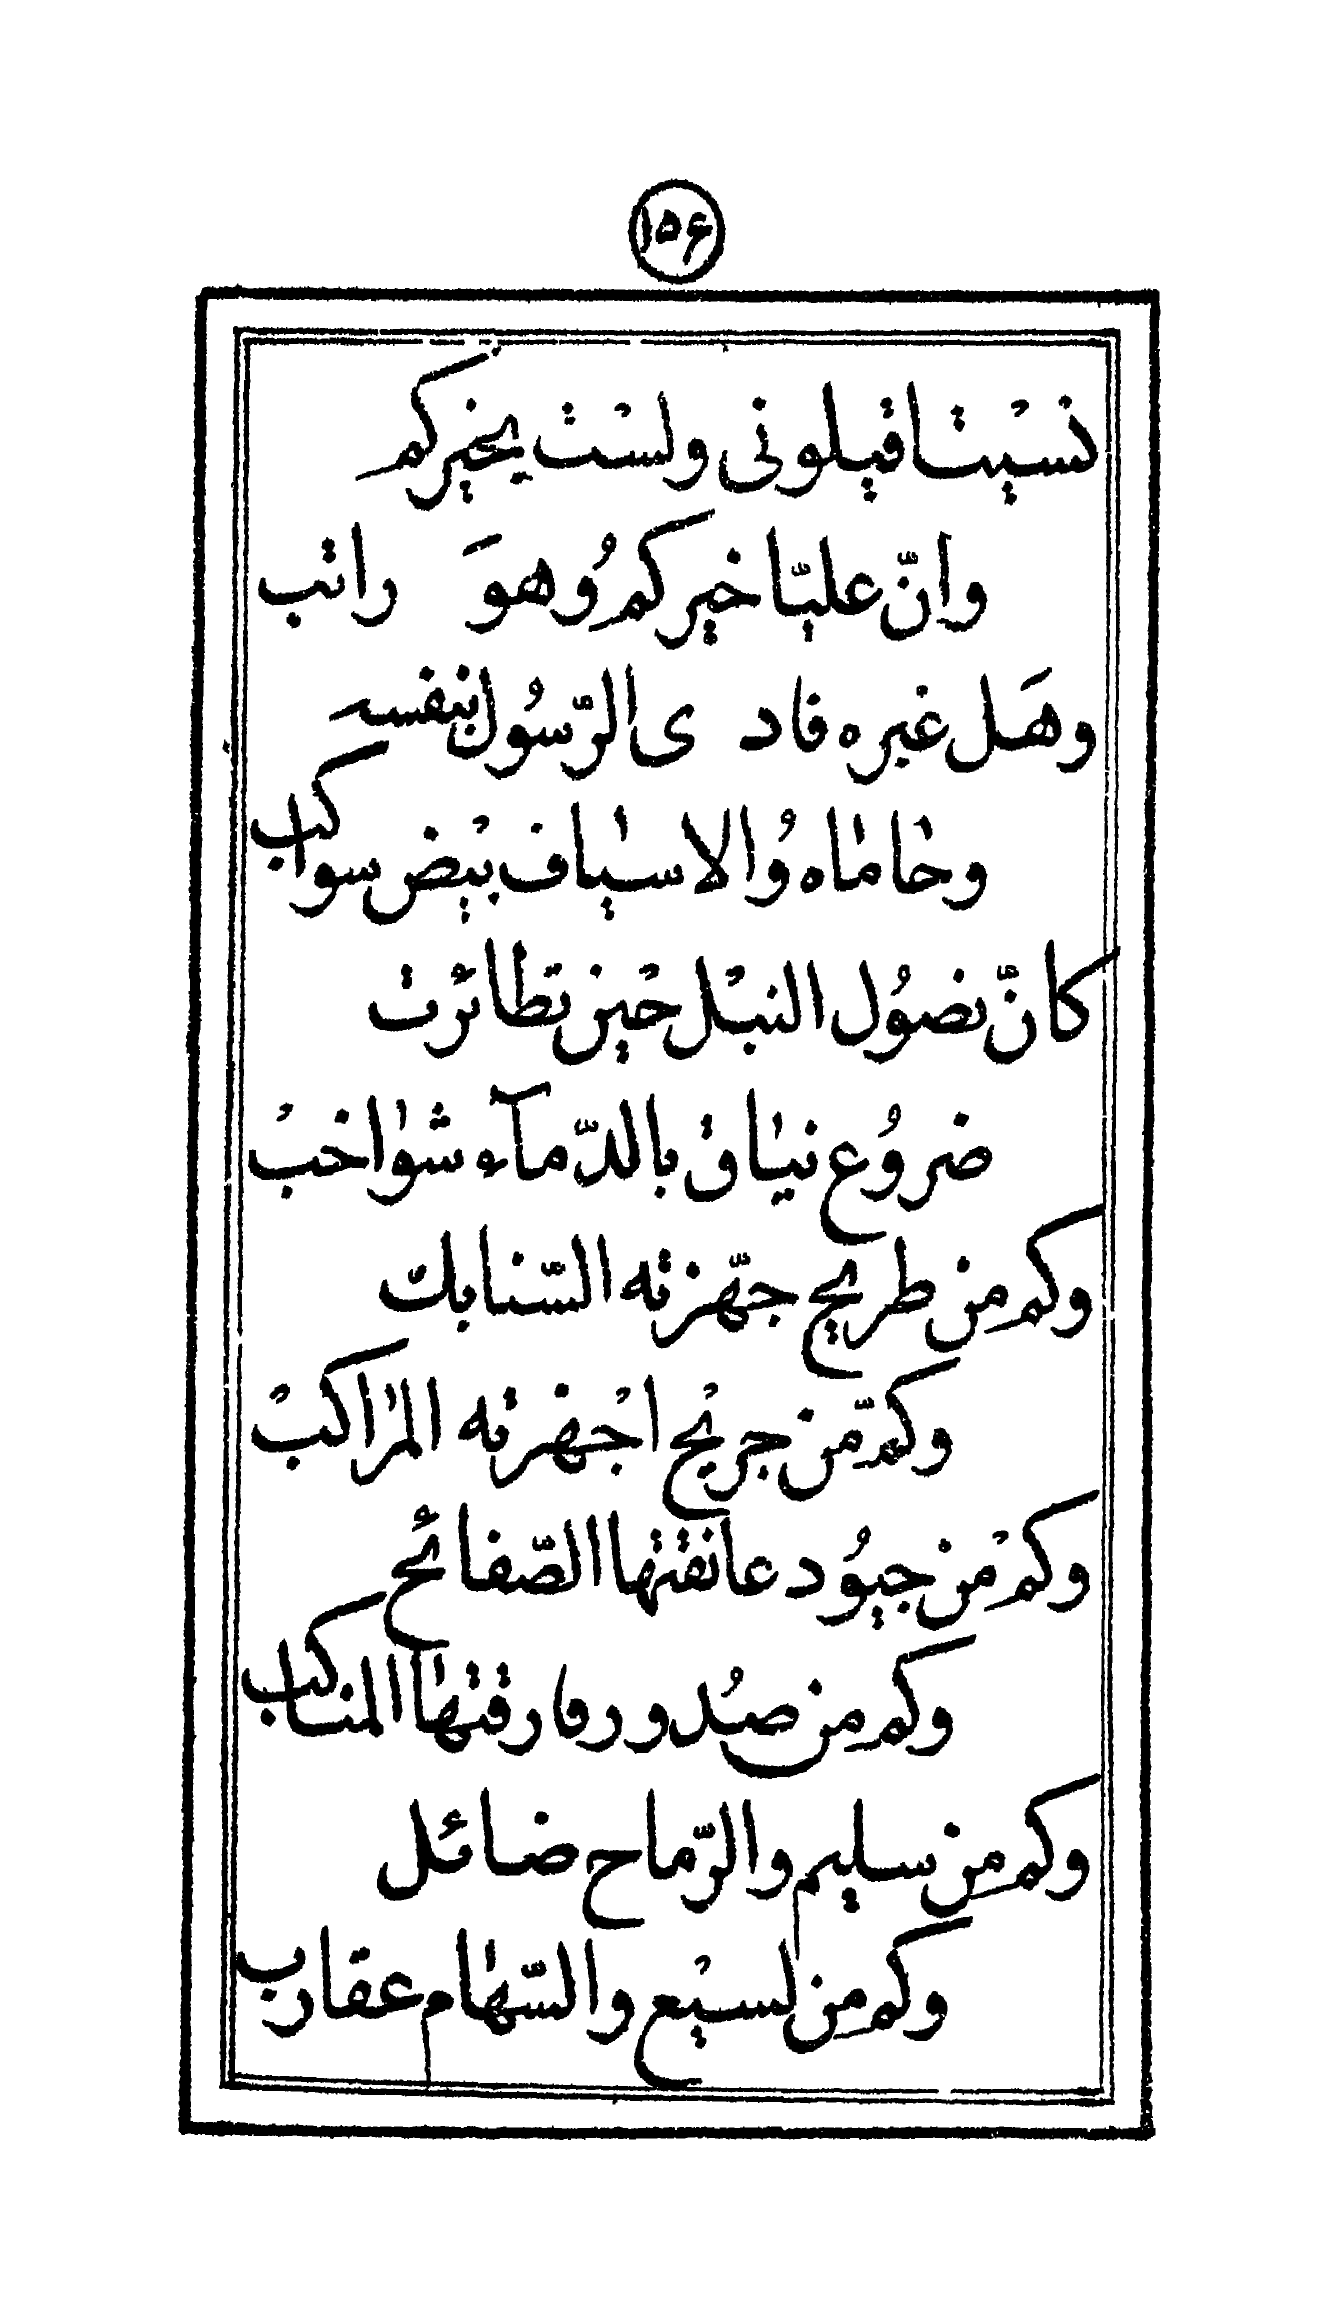 ۱۵۶
نسيتا قيلونى ولست بخيركم
وانّ عليّا خيركم وهو راتب
وهل غيره فاد ى الرّسول بنفسه
وحاماه والاسياف بيض سواكب
كانّ نصول النبل حين تطائرت
ضروع نياق بالدّمآء شواخب
وكم من طريح جهّزته السّنابك
وكم مّن جريح اجهزته المراكب
وكم من جيود عانقتها الصّفائح
وكم من صدور فارقتها المناكب
وكم من سليم والرّماح ضائل
وكم من لسيع والسّهام عقارب